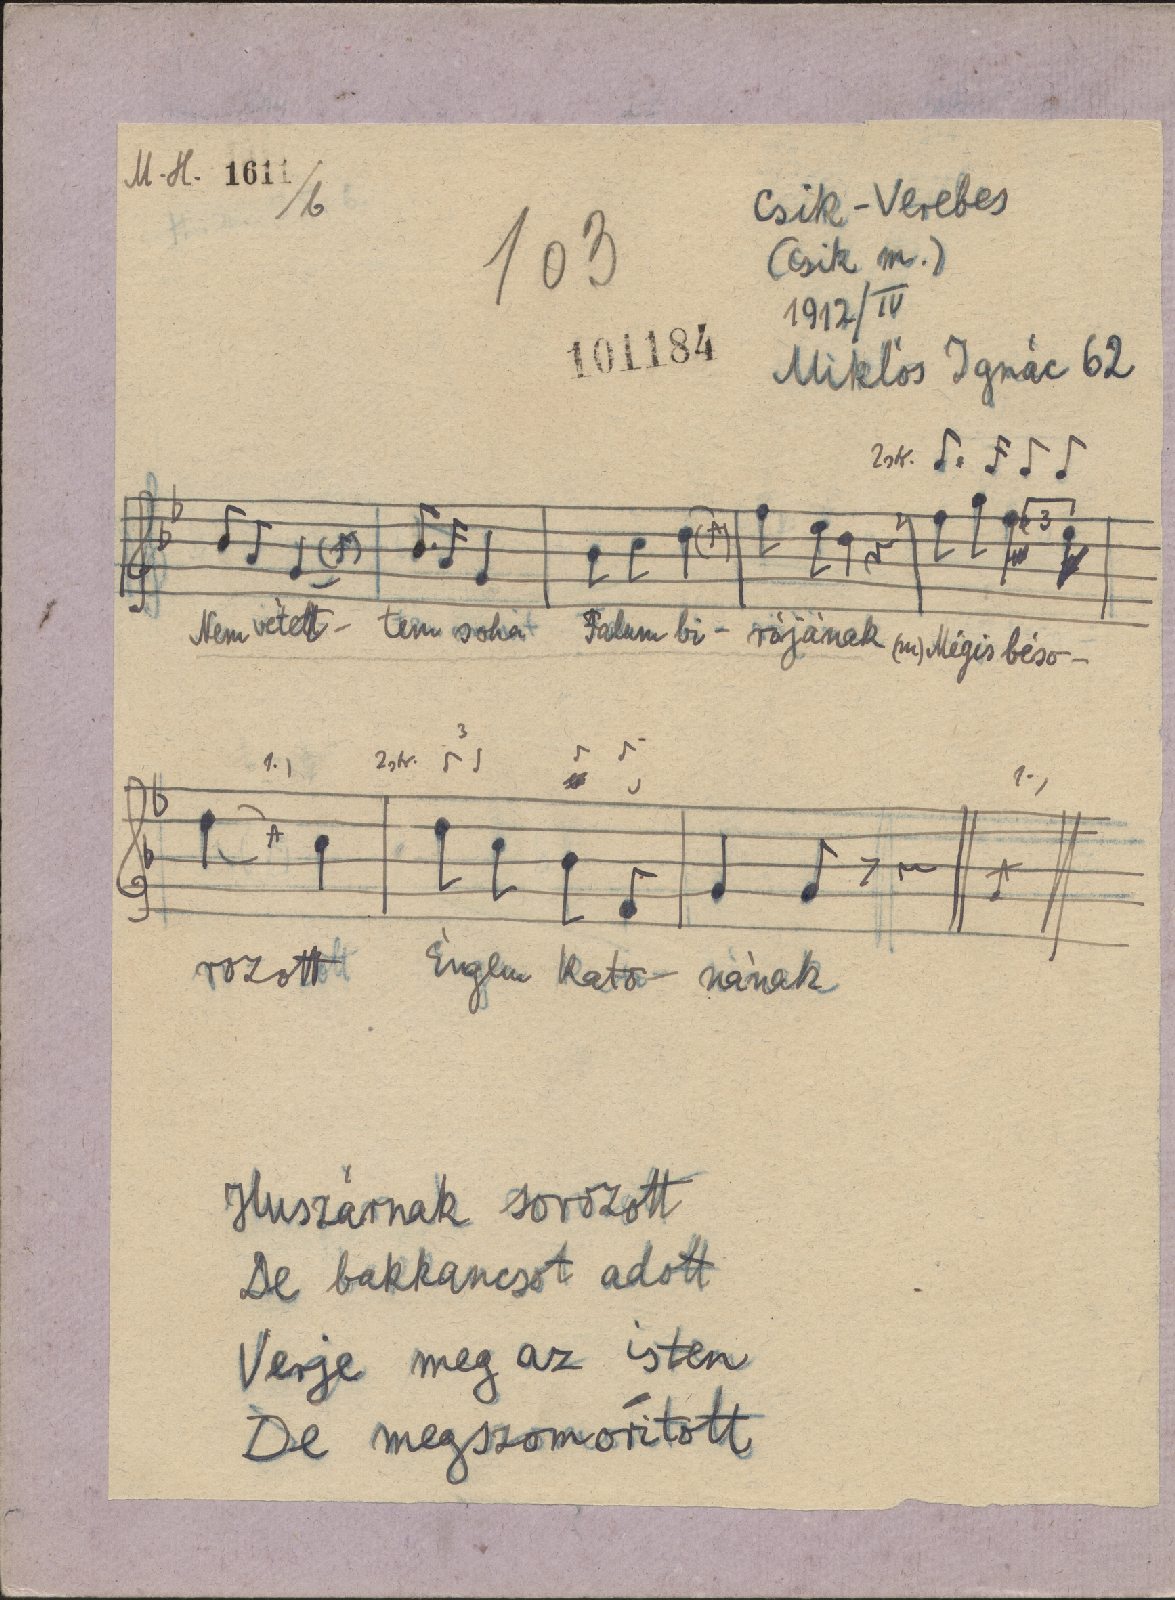 M.-H. 1611/b
103
101184
Csik-Verebes
(Csik m.)
1912/IV
Miklós Ignác 62
2str.
3
Nem vétett- tem soha Falum bi- rójának (m) Mégis béso-
1.) 2str. 3 1.)
rozott Éngem kato- nának
Huszárnak sorozott
De bakkancsot adott
Verje meg az isten
De megszomorított